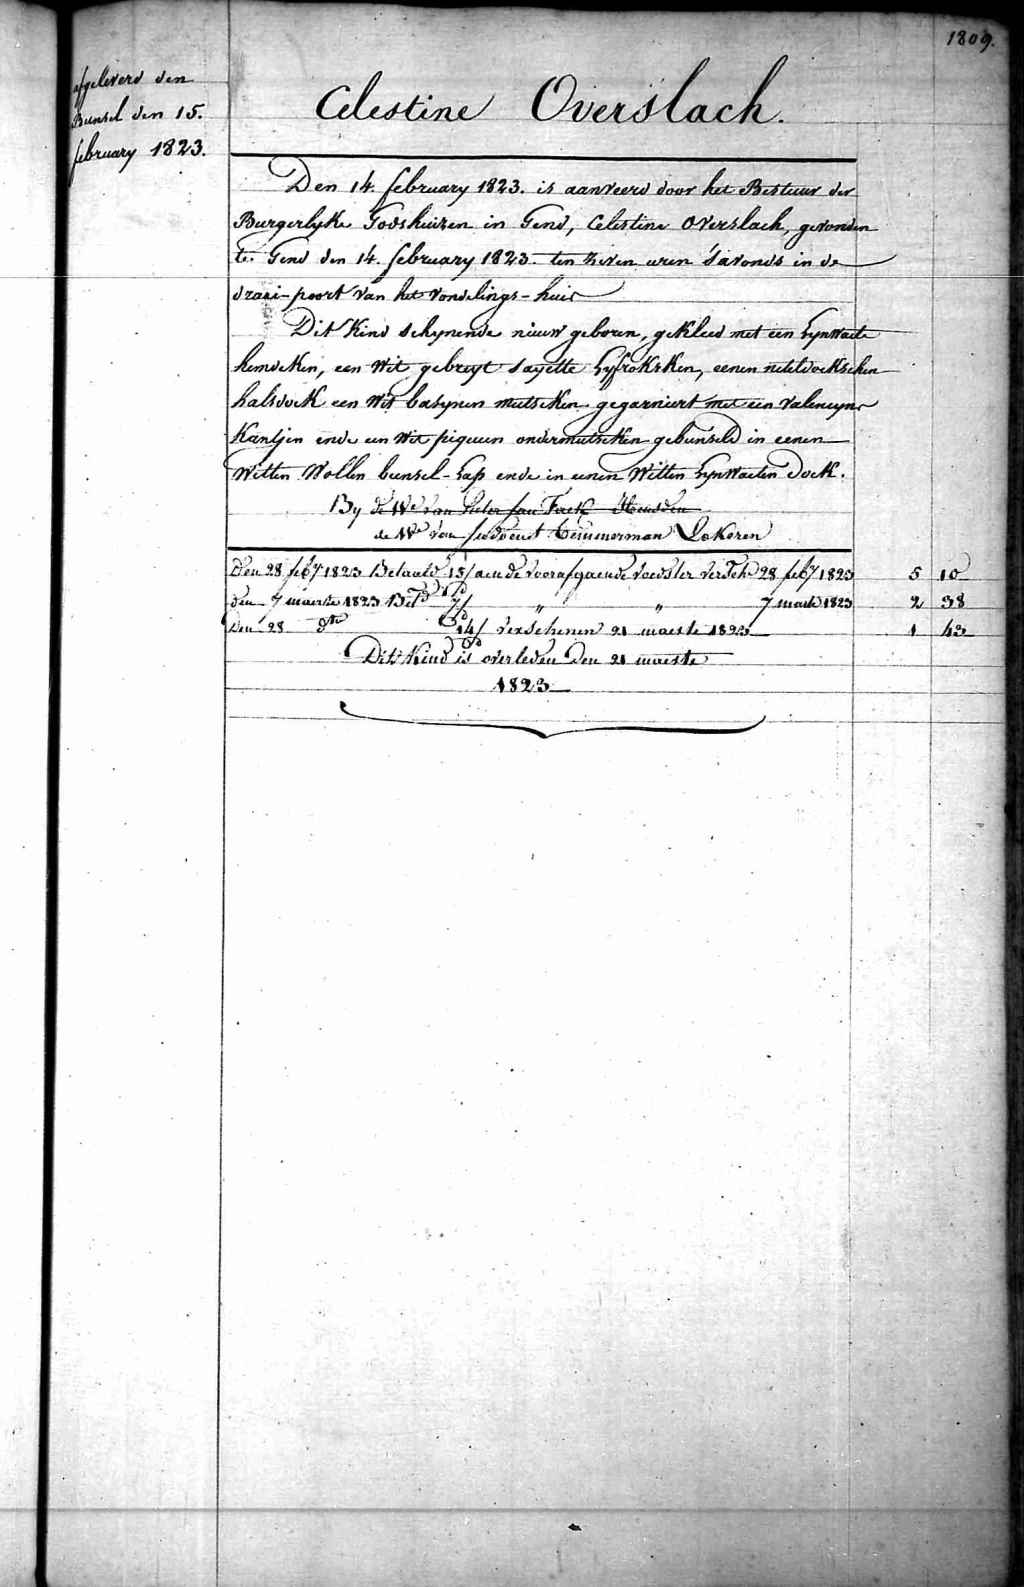 1809.
afgeleverd den
Bunsel den 15.
february 1823.
Celestine Overslach.
Den 14. february 1823. is aanveerd door het Bestuur der
Burgerlyke Godshuizen in Gend, Celestine Overslach, gevonden
te Gend den 14. february 1823. ten zeven uren 's avonds in de
draai-poort van het vondelings-huis
Dit Kind schynende nieuw geboren, gekleed met een Lynwaete
hemdeken, een wit gebreyt sayette Lyfrokxken, eenen neteldoekschen
halsdoek een wit basynen mutseken gegarniert met een valencyns
Kantjen ende een wit piqueen ondermutseken gebunseld in eenen
witten wollen bunsel-Lap ende in eenen witten Lynwaeten doek.
By de We van Pieter Jan Fack Heusden
de We van Temmerman Lokeren
Den 28 feby 1823 Betaald 15/ aen de voorafgaende voedster versch. 28 feby 1823 5 10
den 7 maerte 1823 Betd 7/ " " 7 maerte 1823 2 38
Den 28 dto 14/ verschenen 21 maerte 1823 1 43
Dit Kind is overleden den 21 maerte
1823